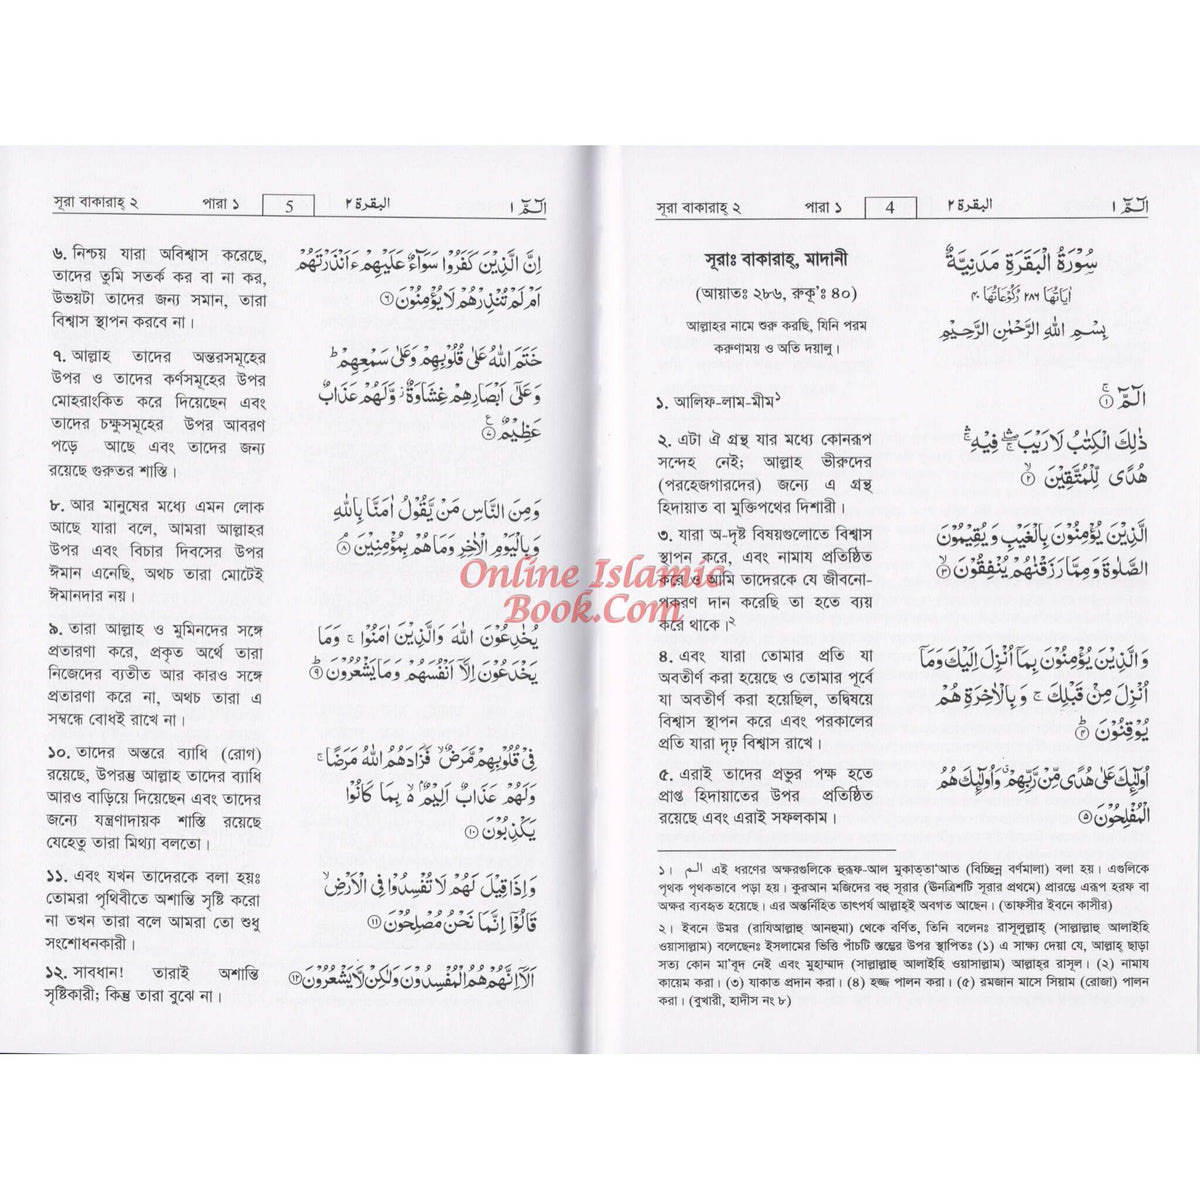 সূরা বাকারাহ্ ২ পারা ১ 4 البقرة ٢ الٓمّٓ ١
সূরাঃ বাকারাহ্, মাদানী
(আয়াতঃ ২৮৬, রুকূ'ঃ ৪০)
আল্লাহর নামে শুরু করছি, যিনি পরম
করুণাময় ও অতি দয়ালু।
১. আলিফ-লাম-মীম১
২. এটা ঐ গ্রন্থ যার মধ্যে কোনরূপ
সন্দেহ নেই; আল্লাহ ভীরুদের
(পরহেজগারদের) জন্যে এ গ্রন্থ
হিদায়াত বা মুক্তিপথের দিশারী।
৩. যারা অ-দৃষ্ট বিষয়গুলোতে বিশ্বাস
স্থাপন করে, এবং নামায প্রতিষ্ঠিত
করে ও আমি তাদেরকে যে জীবনো-
পকরণ দান করেছি তা হতে ব্যয়
করে থাকে।২
৪. এবং যারা তোমার প্রতি যা
অবতীর্ণ করা হয়েছে ও তোমার পূর্বে
যা অবতীর্ণ করা হয়েছিল, তদ্বিষয়ে
বিশ্বাস স্থাপন করে এবং পরকালের
প্রতি যারা দৃঢ় বিশ্বাস রাখে।
৫. এরাই তাদের প্রভুর পক্ষ হতে
প্রাপ্ত হিদায়াতের উপর প্রতিষ্ঠিত
রয়েছে এবং এরাই সফলকাম।
سُوْرَةُ الْبَقَرَةِ مَدَنِيَّةٌ
اٰيَاتُهَا ٢٨٦ رُكُوْعَاتُهَا ٤٠
بِسْمِ اللهِ الرَّحْمٰنِ الرَّحِيْمِ
الٓمّٓ ۚ ①
ذٰلِكَ الْكِتٰبُ لَا رَيْبَ ۛ فِيْهِ ۛ
هُدًى لِّلْمُتَّقِيْنَ ۙ ②
الَّذِيْنَ يُؤْمِنُوْنَ بِالْغَيْبِ وَ يُقِيْمُوْنَ
الصَّلٰوةَ وَ مِمَّا رَزَقْنٰهُمْ يُنْفِقُوْنَ ۙ ③
وَ الَّذِيْنَ يُؤْمِنُوْنَ بِمَآ اُنْزِلَ اِلَيْكَ وَ مَآ
اُنْزِلَ مِنْ قَبْلِكَ ۚ وَ بِالْاٰخِرَةِ هُمْ
يُوْقِنُوْنَ ؕ ④
اُولٰٓئِكَ عَلٰى هُدًى مِّنْ رَّبِّهِمْ ۗ وَ اُولٰٓئِكَ هُمُ
الْمُفْلِحُوْنَ ⑤
১। الم এই ধরণের অক্ষরগুলিকে হুরূফ-আল মুকাত্তা'আত (বিচ্ছিন্ন বর্ণমালা) বলা হয়। এগুলিকে
পৃথক পৃথকভাবে পড়া হয়। কুরআন মজিদের বহু সূরার (ঊনত্রিশটি সূরার প্রথমে) প্রারম্ভে এরূপ হরফ বা
অক্ষর ব্যবহৃত হয়েছে। এর অন্তর্নিহিত তাৎপর্য আল্লাহ্ই অবগত আছেন। (তাফসীর ইবনে কাসীর)
২। ইবনে উমর (রাযিআল্লাহু আনহুমা) থেকে বর্ণিত, তিনি বলেনঃ রাসূলুল্লাহ্ (সাল্লাল্লাহু আলাইহি
ওয়াসাল্লাম) বলেছেনঃ ইসলামের ভিত্তি পাঁচটি স্তম্ভের উপর স্থাপিতঃ (১) এ সাক্ষ্য দেয়া যে, আল্লাহ্ ছাড়া
সত্য কোন মা'বূদ নেই এবং মুহাম্মাদ (সাল্লাল্লাহু আলাইহি ওয়াসাল্লাম) আল্লাহ্‌র রাসূল। (২) নামায
কায়েম করা। (৩) যাকাত প্রদান করা। (৪) হজ্জ পালন করা। (৫) রমজান মাসে সিয়াম (রোজা) পালন
করা। (বুখারী, হাদীস নং ৮)
সূরা বাকারাহ্ ২ পারা ১ 5 البقرة ٢ الٓمّٓ ١
৬. নিশ্চয় যারা অবিশ্বাস করেছে,
তাদের তুমি সতর্ক কর বা না কর,
উভয়টা তাদের জন্য সমান, তারা
বিশ্বাস স্থাপন করবে না।
৭. আল্লাহ তাদের অন্তরসমূহের
উপর ও তাদের কর্ণসমূহের উপর
মোহরাংকিত করে দিয়েছেন এবং
তাদের চক্ষুসমূহের উপর আবরণ
পড়ে আছে এবং তাদের জন্য
রয়েছে গুরুতর শাস্তি।
৮. আর মানুষের মধ্যে এমন লোক
আছে যারা বলে, আমরা আল্লাহর
উপর এবং বিচার দিবসের উপর
ঈমান এনেছি, অথচ তারা মোটেই
ঈমানদার নয়।
৯. তারা আল্লাহ ও মুমিনদের সঙ্গে
প্রতারণা করে, প্রকৃত অর্থে তারা
নিজেদের ব্যতীত আর কারও সঙ্গে
প্রতারণা করে না, অথচ তারা এ
সম্বন্ধে বোধই রাখে না।
১০. তাদের অন্তরে ব্যাধি (রোগ)
রয়েছে, উপরন্তু আল্লাহ তাদের ব্যাধি
আরও বাড়িয়ে দিয়েছেন এবং তাদের
জন্যে যন্ত্রণাদায়ক শাস্তি রয়েছে
যেহেতু তারা মিথ্যা বলতো।
১১. এবং যখন তাদেরকে বলা হয়ঃ
তোমরা পৃথিবীতে অশান্তি সৃষ্টি করো
না তখন তারা বলে আমরা তো শুধু
সংশোধনকারী।
১২. সাবধান! তারাই অশান্তি
সৃষ্টিকারী; কিন্তু তারা বুঝে না।
اِنَّ الَّذِيْنَ كَفَرُوْا سَوَآءٌ عَلَيْهِمْ ءَاَنْذَرْتَهُمْ
اَمْ لَمْ تُنْذِرْهُمْ لَا يُؤْمِنُوْنَ ⑥
خَتَمَ اللهُ عَلٰى قُلُوْبِهِمْ وَعَلٰى سَمْعِهِمْ ؕ
وَعَلٰٓى اَبْصَارِهِمْ غِشَاوَةٌ ؗ وَّلَهُمْ عَذَابٌ
عَظِيْمٌ ⑦ ع
وَمِنَ النَّاسِ مَنْ يَّقُوْلُ اٰمَنَّا بِاللهِ
وَبِالْيَوْمِ الْاٰخِرِ وَمَا هُمْ بِمُؤْمِنِيْنَ ۘ ⑧
يُخٰدِعُوْنَ اللهَ وَالَّذِيْنَ اٰمَنُوْا ۚ وَمَا
يَخْدَعُوْنَ اِلَّآ اَنْفُسَهُمْ وَمَا يَشْعُرُوْنَ ؕ ⑨
فِيْ قُلُوْبِهِمْ مَّرَضٌ ۙ فَزَادَهُمُ اللهُ مَرَضًا ۚ
وَلَهُمْ عَذَابٌ اَلِيْمٌ ۢ ۙ بِمَا كَانُوْا
يَكْذِبُوْنَ ⑩
وَاِذَا قِيْلَ لَهُمْ لَا تُفْسِدُوْا فِي الْاَرْضِ ۙ
قَالُوْٓا اِنَّمَا نَحْنُ مُصْلِحُوْنَ ⑪
اَلَآ اِنَّهُمْ هُمُ الْمُفْسِدُوْنَ وَلٰكِنْ لَّا يَشْعُرُوْنَ ⑫
Online Islamic
Book.Com